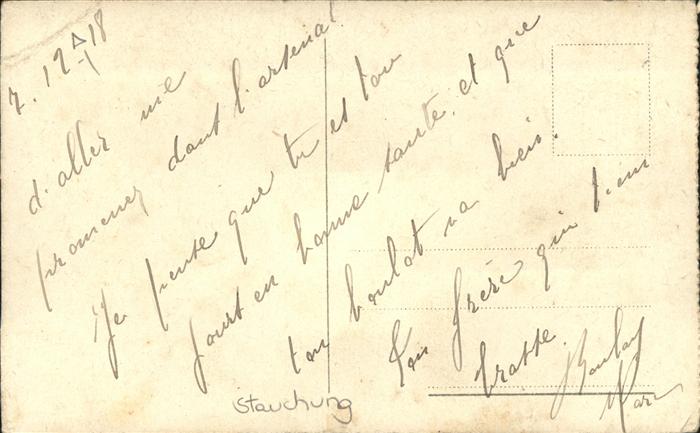 7. 12 18
d'aller me
promenez dant l'artena
Je pense que tu est tou
jourt en bonne sante. et que
ton boulot va bien.
Ton frere qui t'em
brasse.
Marc
Stauchung